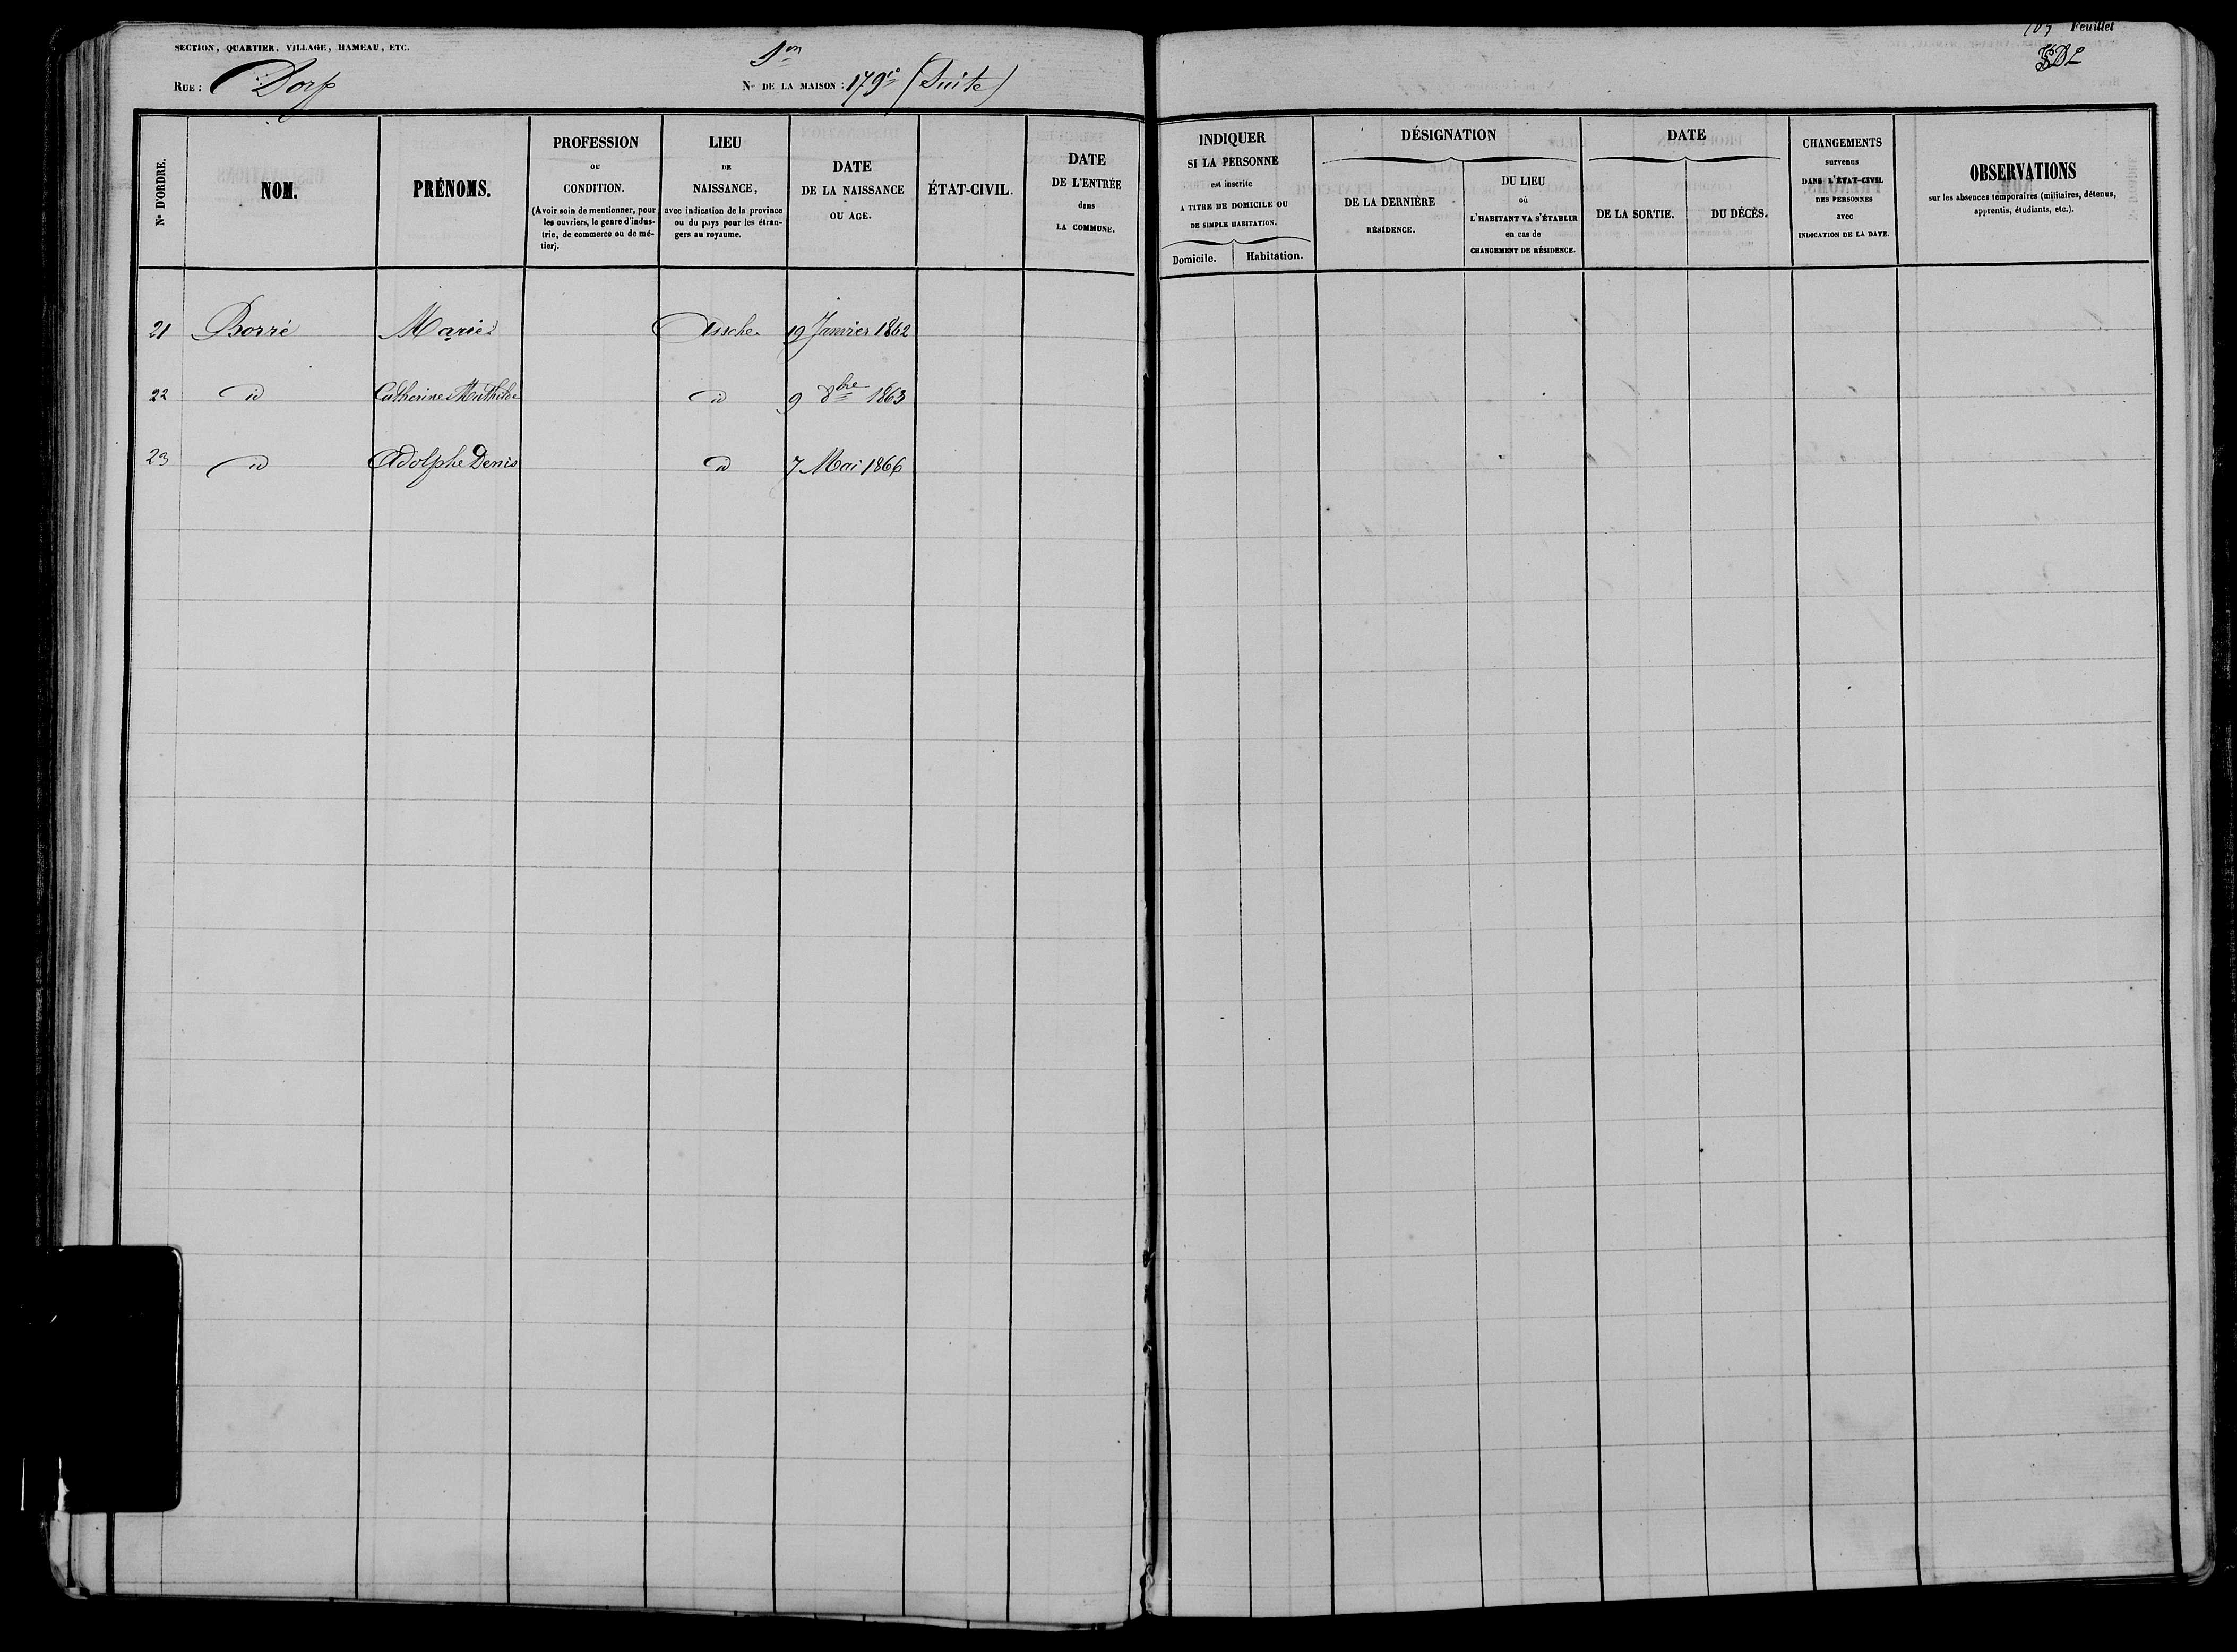 SECTION, QUARTIER, VILLAGE, HAMEAU, ETC.
RUE : Dorp
Son
No DE LA MAISON : 179 (Suite)
Feuillet
No D'ORDRE.
NOM.
PRÉNOMS.
PROFESSION
OU
CONDITION.
(Avoir soin de mentionner, pour
les ouvriers, le genre d'indus-
trie, de commerce ou de mé-
tier).
LIEU
DE
NAISSANCE,
avec indication de la province
ou du pays pour les étran-
gers au royaume.
DATE
DE LA NAISSANCE
OU AGE.
ÉTAT-CIVIL.
DATE
DE L'ENTRÉE
dans
LA COMMUNE.
INDIQUER
SI LA PERSONNE
est inscrite
A TITRE DE DOMICILE OU
DE SIMPLE HABITATION.
Domicile. Habitation.
DÉSIGNATION
DE LA DERNIÈRE
RÉSIDENCE.
DU LIEU
où
L'HABITANT VA S'ÉTABLIR
en cas de
CHANGEMENT DE RÉSIDENCE.
DATE
DE LA SORTIE. DU DÉCÈS.
CHANGEMENTS
survenus
DANS L'ÉTAT-CIVIL
DES PERSONNES
avec
INDICATION DE LA DATE.
OBSERVATIONS
sur les absences temporaires (militaires, détenus,
apprentis, étudiants, etc.).
21 Borré Marie Assche 19 Janvier 1862
22 id Catherine Mathilde id 9 8bre 1863
23 id Adolphe Denis id 7 Mai 1866